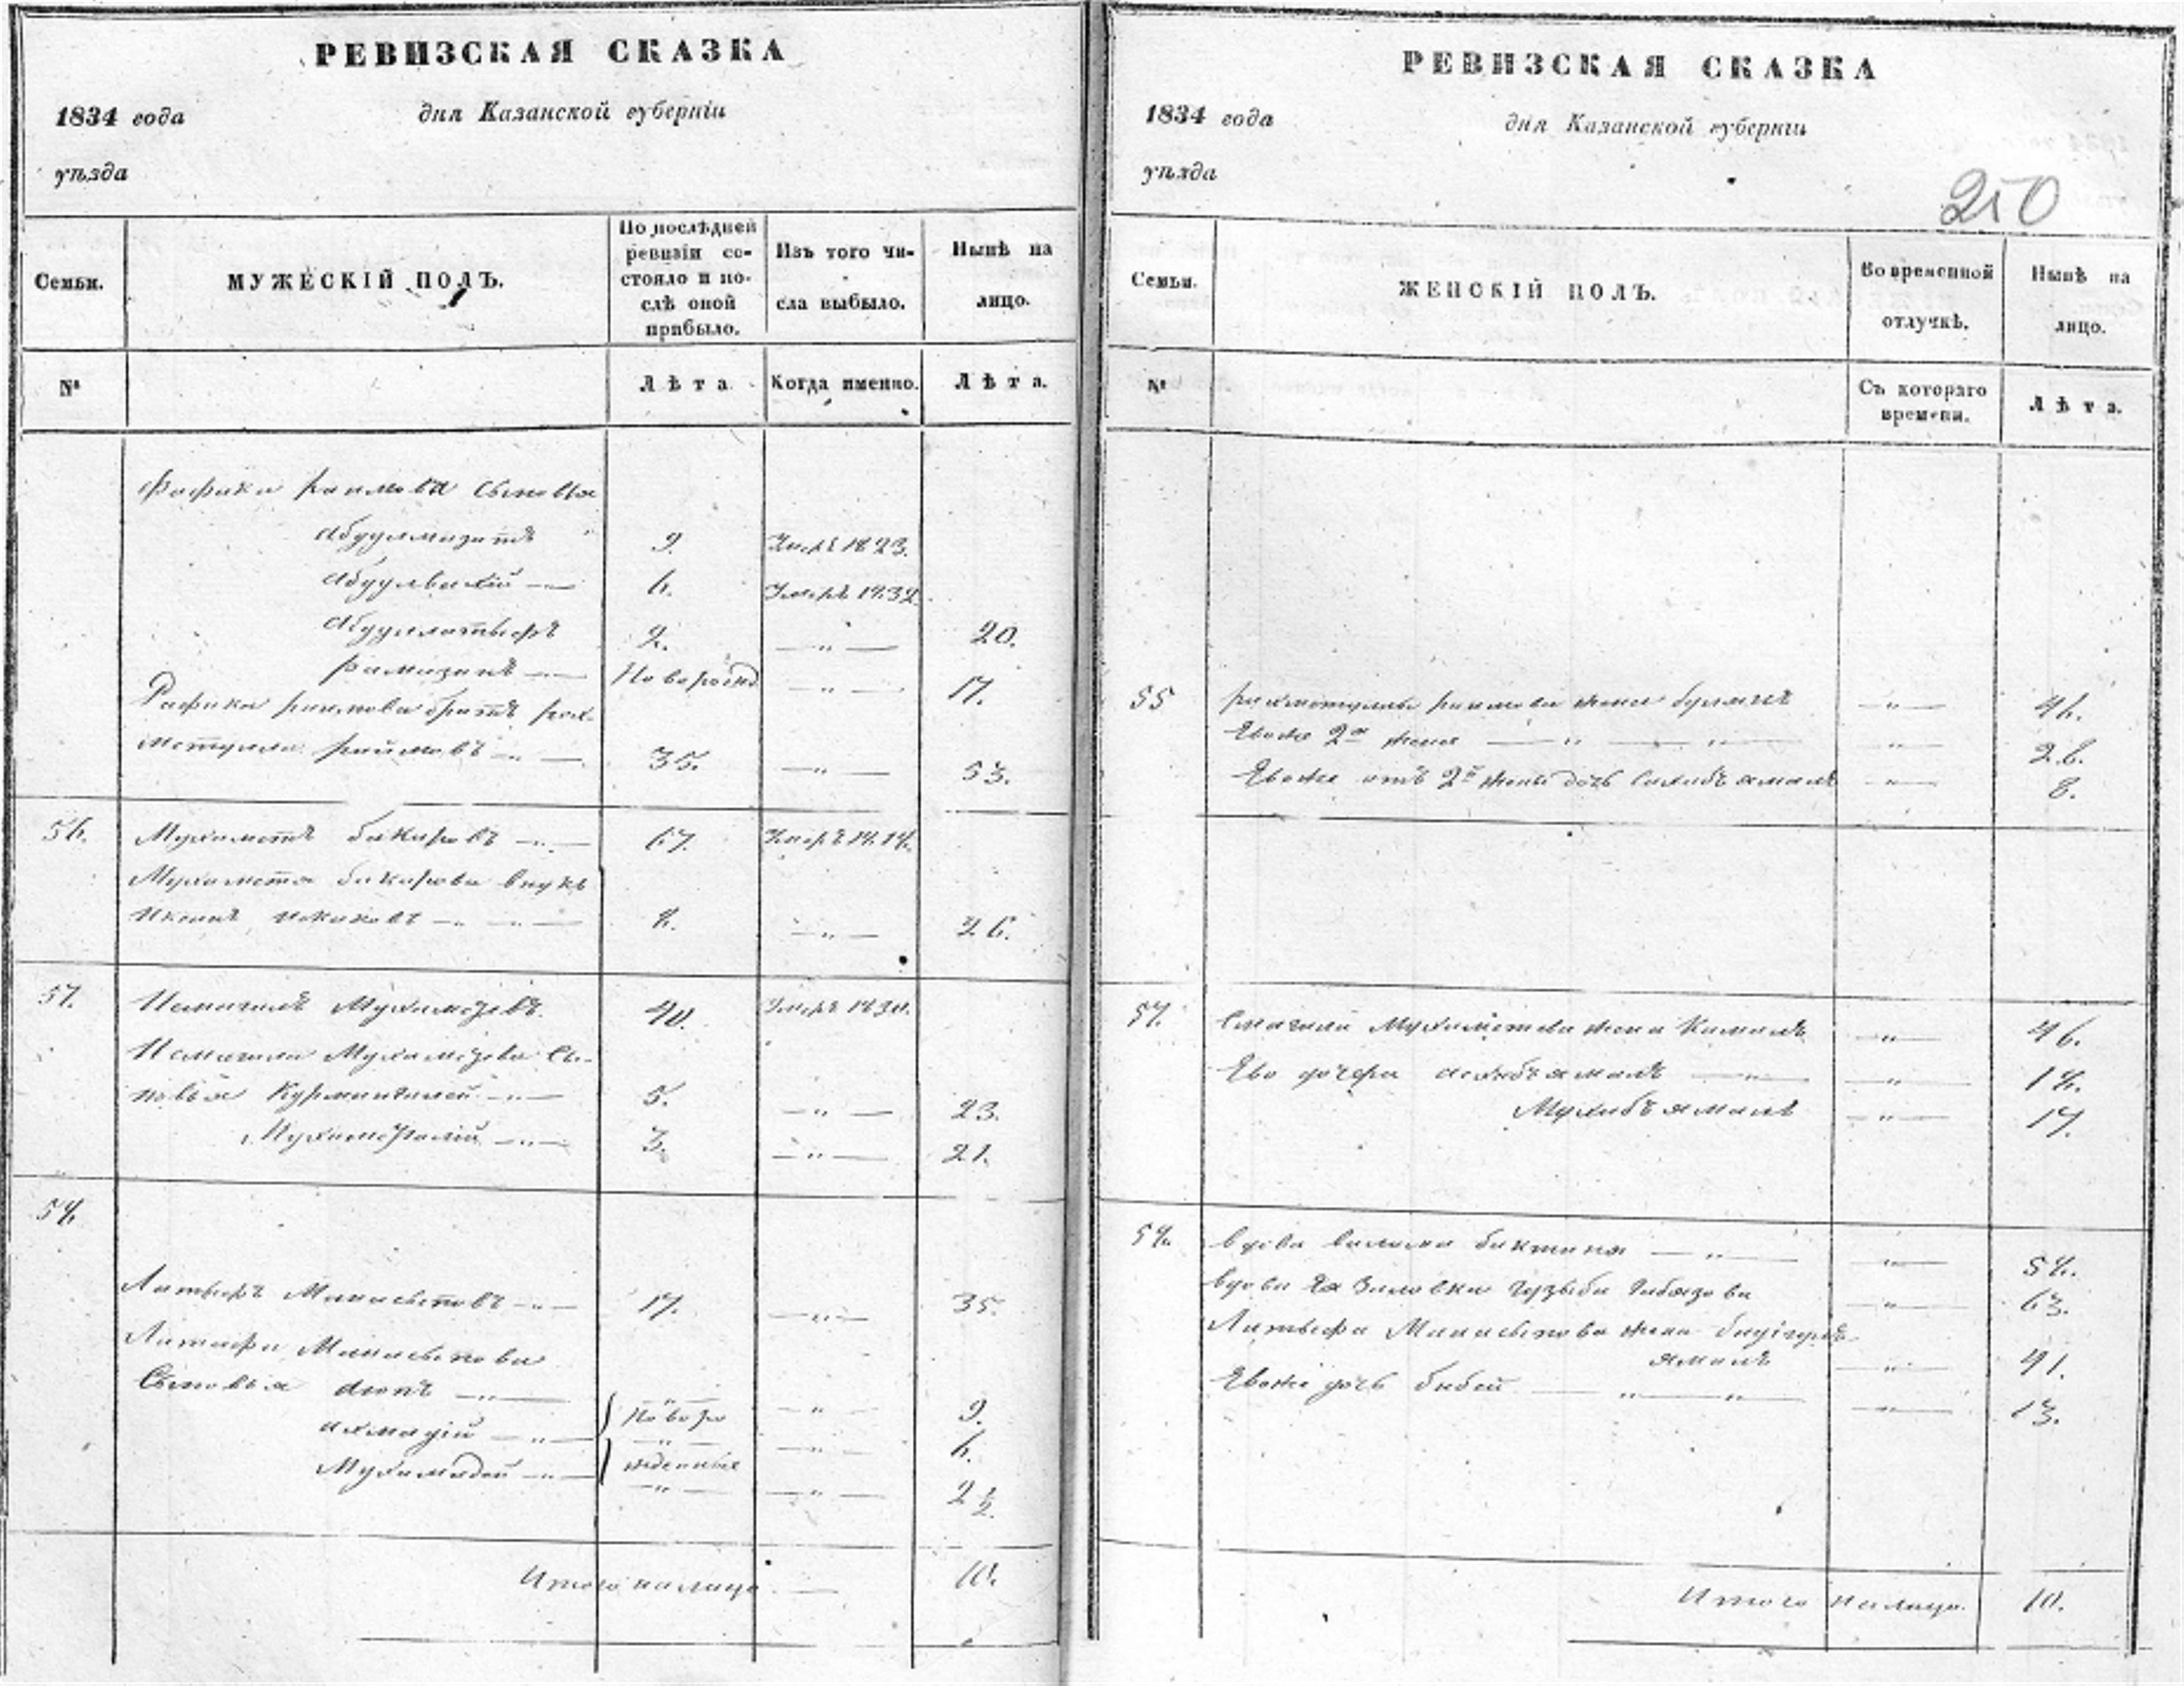 РЕВИЗСКАЯ СКАЗКА
1834 года дня Казанской губерніи
уѣзда
Семьи. МУЖЕСКІЙ ПОЛЪ. По послѣдней ревизіи состояло и послѣ оной прибыло. Изъ того числа выбыло. Нынѣ на лицо.
№ Лѣта Когда именно. Лѣта.
Рафика раимова сыновья
Абдулмазитъ 9. Умеръ 1823.
Абдулвахій 6. Умеръ 1832
Абдуллатыфъ 2. 20.
рамазанъ Новорожд 17.
Рафика раимова братъ рах-
метулла раимовъ 35. 53.
56. Мухаметъ бакировъ 67. Умеръ 1818.
Мухамета бакирова внукъ
8. 26.
57. Исмагилъ 40. Умеръ
Исмагила сы-
новья Курмангалей 5. 23.
Мухаметгалій 3. 21.
58.
Латыфъ 17. 35.
Латыфа
Сыновья Аюпъ Новоро 9.
Ахмадій жденные 6.
Мухамадей 2 ½
Итого налицо 10.
РЕВИЗСКАЯ СКАЗКА
1834 года дня Казанской губерніи
уѣзда
250
Семьи. ЖЕНСКІЙ ПОЛЪ. Во временной отлучкѣ. Нынѣ на лицо.
№ Съ котораго времени. Лѣта.
55 рахметуллы раимова жена 46.
Евоже 2я жена 26.
Евоже отъ 2й жены дочь Сахибъямалъ 8.
57. Смагила Мухаметева жена Камалъ 46.
Ево дочери 18.
Мухибъямалъ 17.
58. вдова 58.
вдова Ея золовка 63.
Латыфа жена
ямалъ 41.
Евоже дочь бибей 13.
Итого налицо. 10.